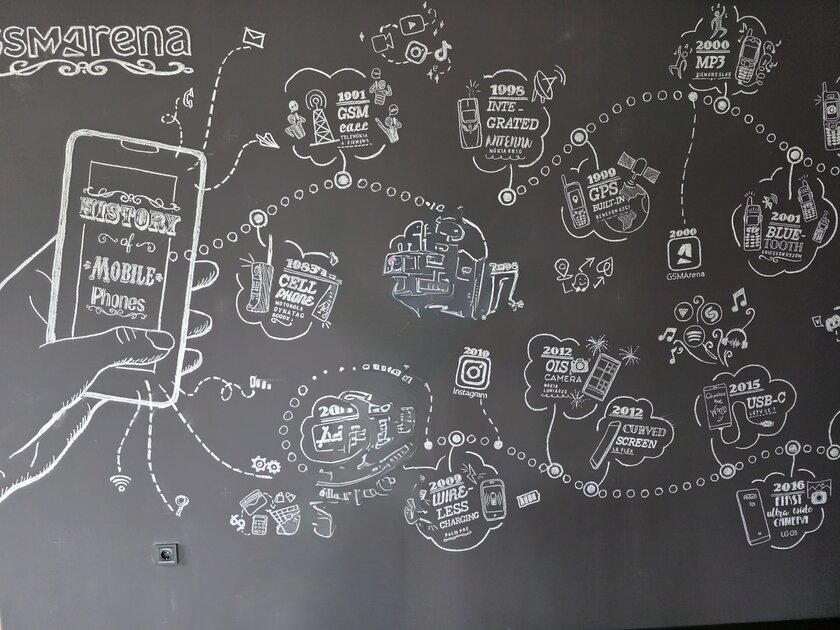 GSMArena
HISTORY
of
MOBILE
Phones
1991
GSM
call
TELENOKIA
& SIEMENS
1998
INTE-
GRATED
ANTENNA
NOKIA 8810
2000
MP3
SIEMENS SL45
1983
CELL
PHONE
MOTOROLA
DYNATAC
8000X
1999
GPS
BUILT-IN
BENEFON ESC!
2000
GSMArena
2001
BLUE-
TOOTH
ERICSSON R520M
2010
Instagram
2012
OIS
CAMERA
NOKIA
LUMIA 920
2012
CURVED
SCREEN
LG FLEX
2015
USB-C
LETV LE 1
2009
WIRE-
LESS
CHARGING
PALM PRE
2016
FIRST
ultra wide
CAMERA
LG G5